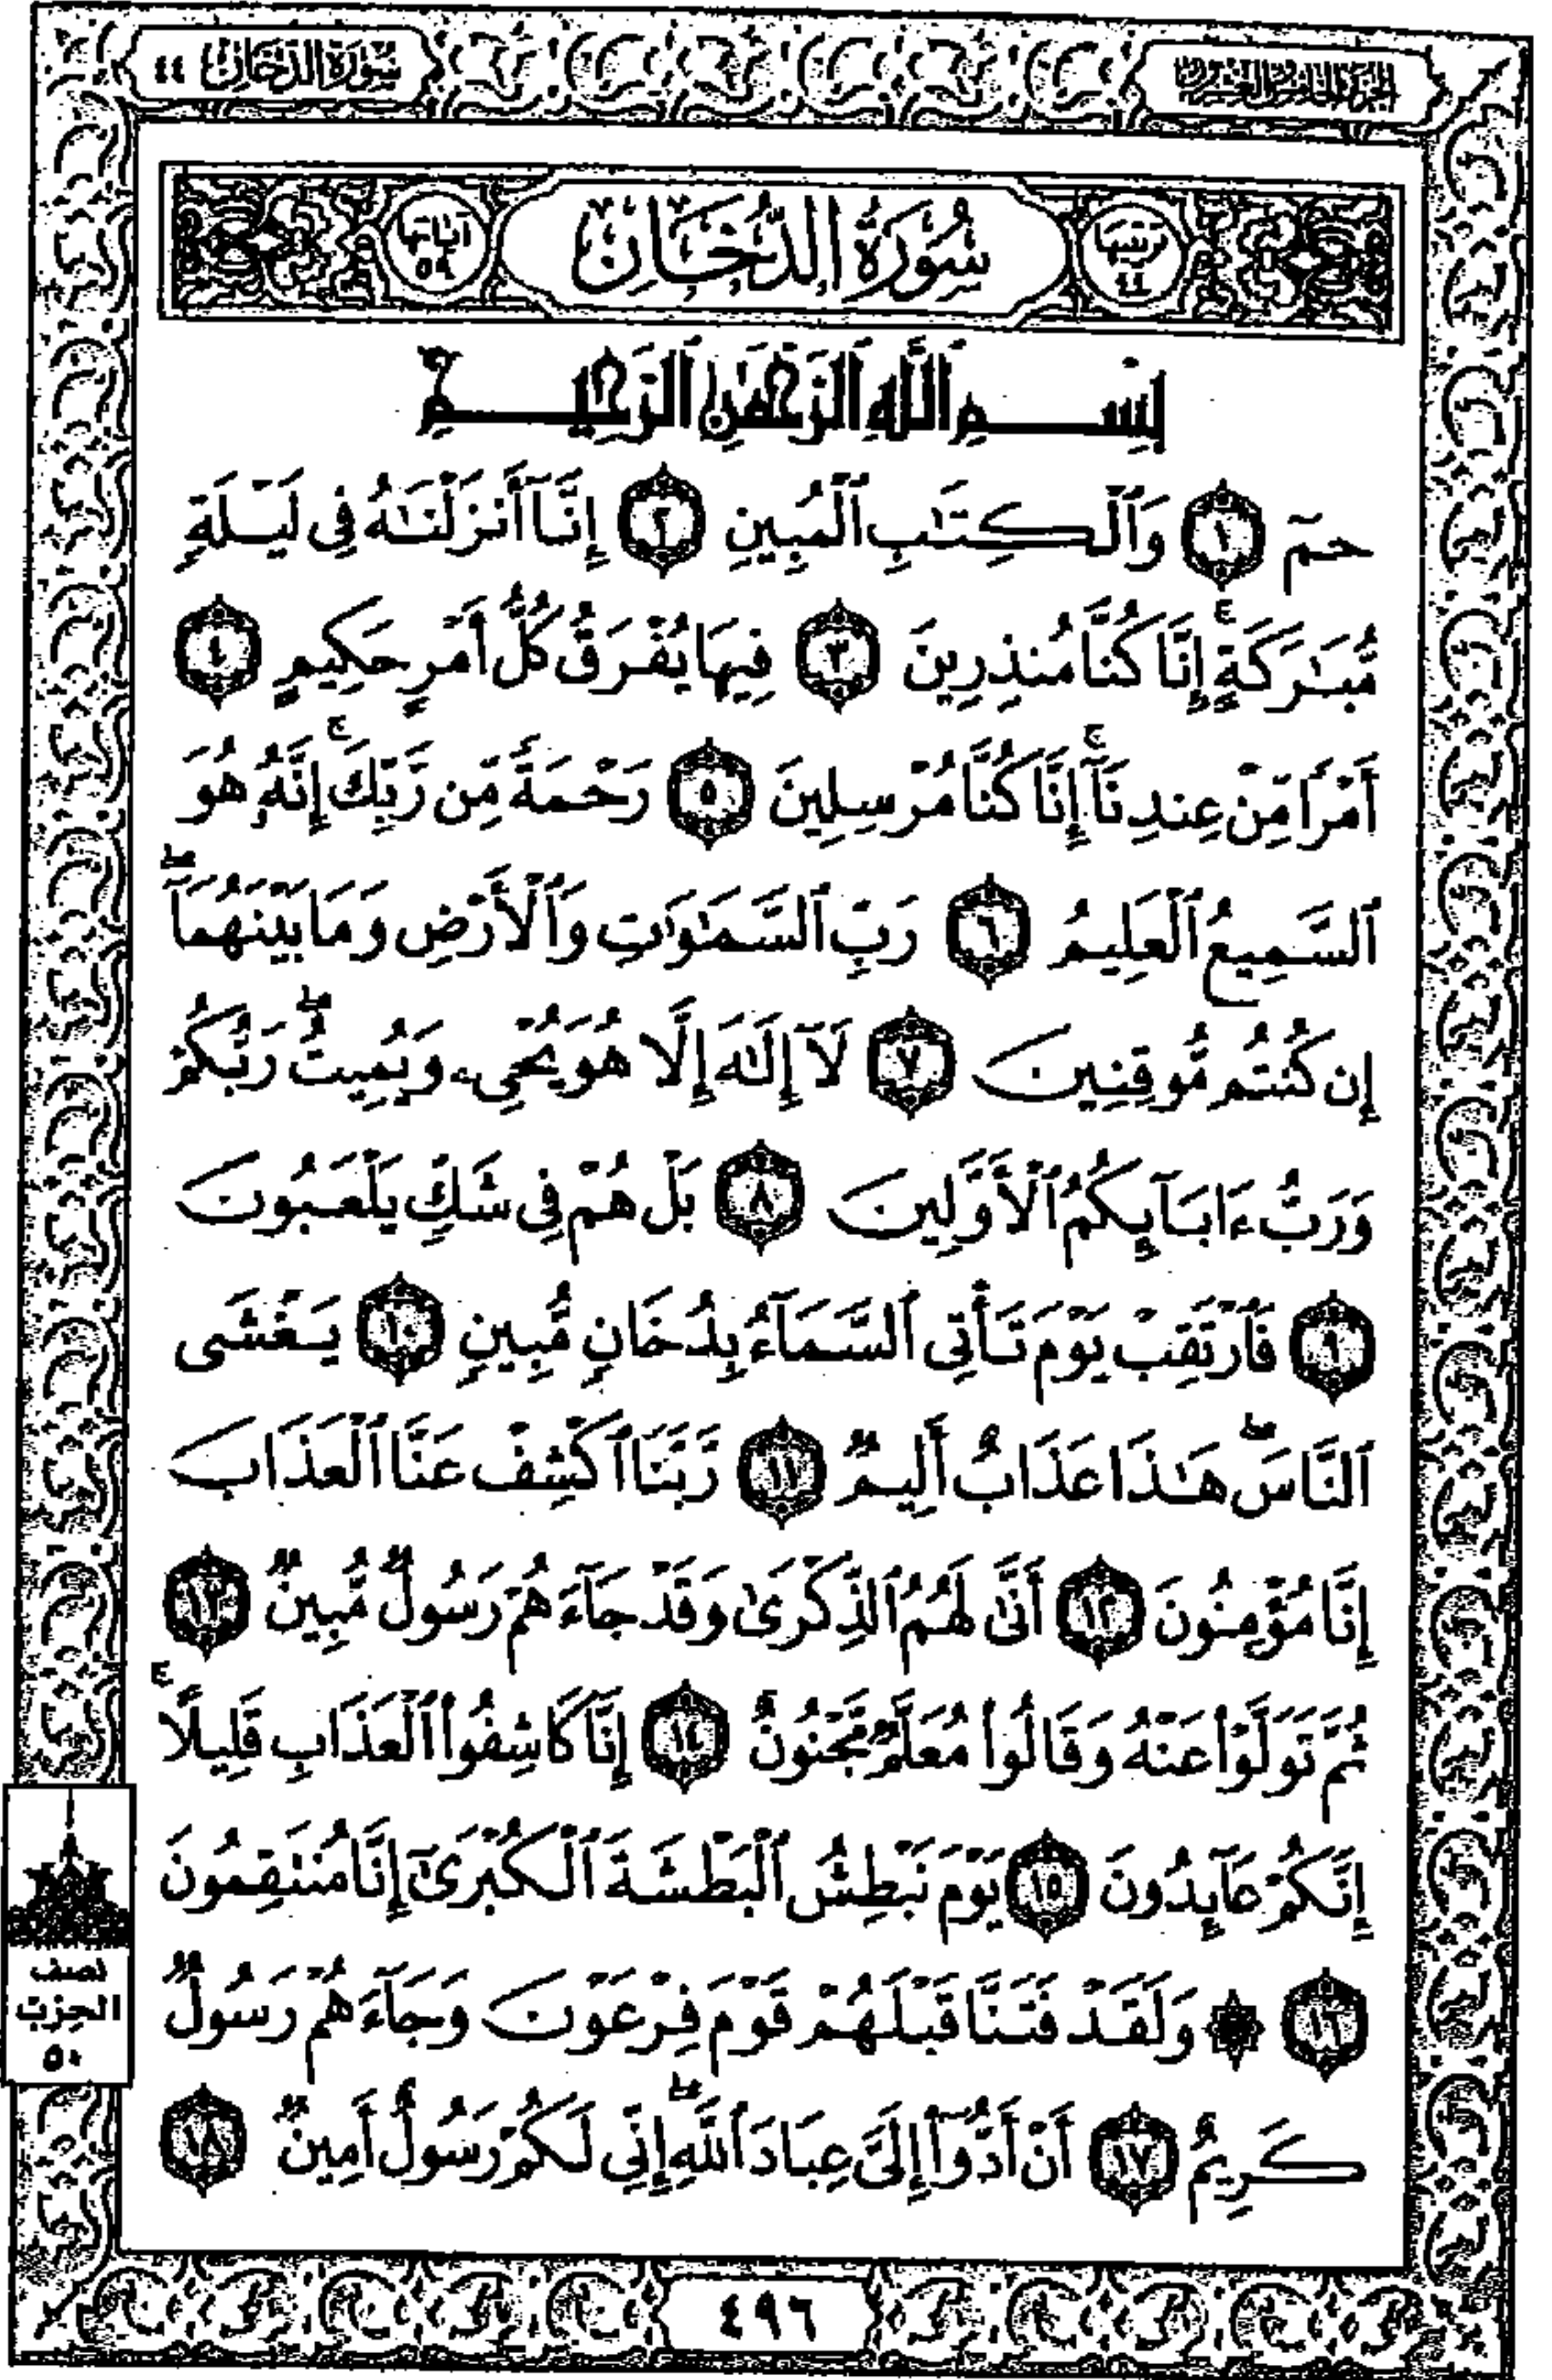 الجزء الخامس والعشرون
سورة الدخان ٤٤
ترتيبها ٤٤
سُورَةُ الدُّخَانِ
آياتها ٥٩
بِسْمِ ٱللَّهِ ٱلرَّحْمَٰنِ ٱلرَّحِيمِ
حمٓ ١ وَٱلْكِتَٰبِ ٱلْمُبِينِ ٢ إِنَّآ أَنزَلْنَٰهُ فِى لَيْلَةٍ
مُّبَٰرَكَةٍ ۚ إِنَّا كُنَّا مُنذِرِينَ ٣ فِيهَا يُفْرَقُ كُلُّ أَمْرٍ حَكِيمٍ ٤
أَمْرًا مِّنْ عِندِنَآ ۚ إِنَّا كُنَّا مُرْسِلِينَ ٥ رَحْمَةً مِّن رَّبِّكَ ۚ إِنَّهُۥ هُوَ
ٱلسَّمِيعُ ٱلْعَلِيمُ ٦ رَبِّ ٱلسَّمَٰوَٰتِ وَٱلْأَرْضِ وَمَا بَيْنَهُمَآ ۖ
إِن كُنتُم مُّوقِنِينَ ٧ لَآ إِلَٰهَ إِلَّا هُوَ يُحْىِۦ وَيُمِيتُ ۖ رَبُّكُمْ
وَرَبُّ ءَابَآئِكُمُ ٱلْأَوَّلِينَ ٨ بَلْ هُمْ فِى شَكٍّ يَلْعَبُونَ
٩ فَٱرْتَقِبْ يَوْمَ تَأْتِى ٱلسَّمَآءُ بِدُخَانٍ مُّبِينٍ ١٠ يَغْشَى
ٱلنَّاسَ ۖ هَٰذَا عَذَابٌ أَلِيمٌ ١١ رَّبَّنَا ٱكْشِفْ عَنَّا ٱلْعَذَابَ
إِنَّا مُؤْمِنُونَ ١٢ أَنَّىٰ لَهُمُ ٱلذِّكْرَىٰ وَقَدْ جَآءَهُمْ رَسُولٌ مُّبِينٌ ١٣
ثُمَّ تَوَلَّوْا۟ عَنْهُ وَقَالُوا۟ مُعَلَّمٌ مَّجْنُونٌ ١٤ إِنَّا كَاشِفُوا۟ ٱلْعَذَابِ قَلِيلًا ۚ
إِنَّكُمْ عَآئِدُونَ ١٥ يَوْمَ نَبْطِشُ ٱلْبَطْشَةَ ٱلْكُبْرَىٰٓ إِنَّا مُنتَقِمُونَ
١٦ ۞ وَلَقَدْ فَتَنَّا قَبْلَهُمْ قَوْمَ فِرْعَوْنَ وَجَآءَهُمْ رَسُولٌ
كَرِيمٌ ١٧ أَنْ أَدُّوٓا۟ إِلَىَّ عِبَادَ ٱللَّهِ ۖ إِنِّى لَكُمْ رَسُولٌ أَمِينٌ ١٨
نصف
الحزب
٥٠
٤٩٦